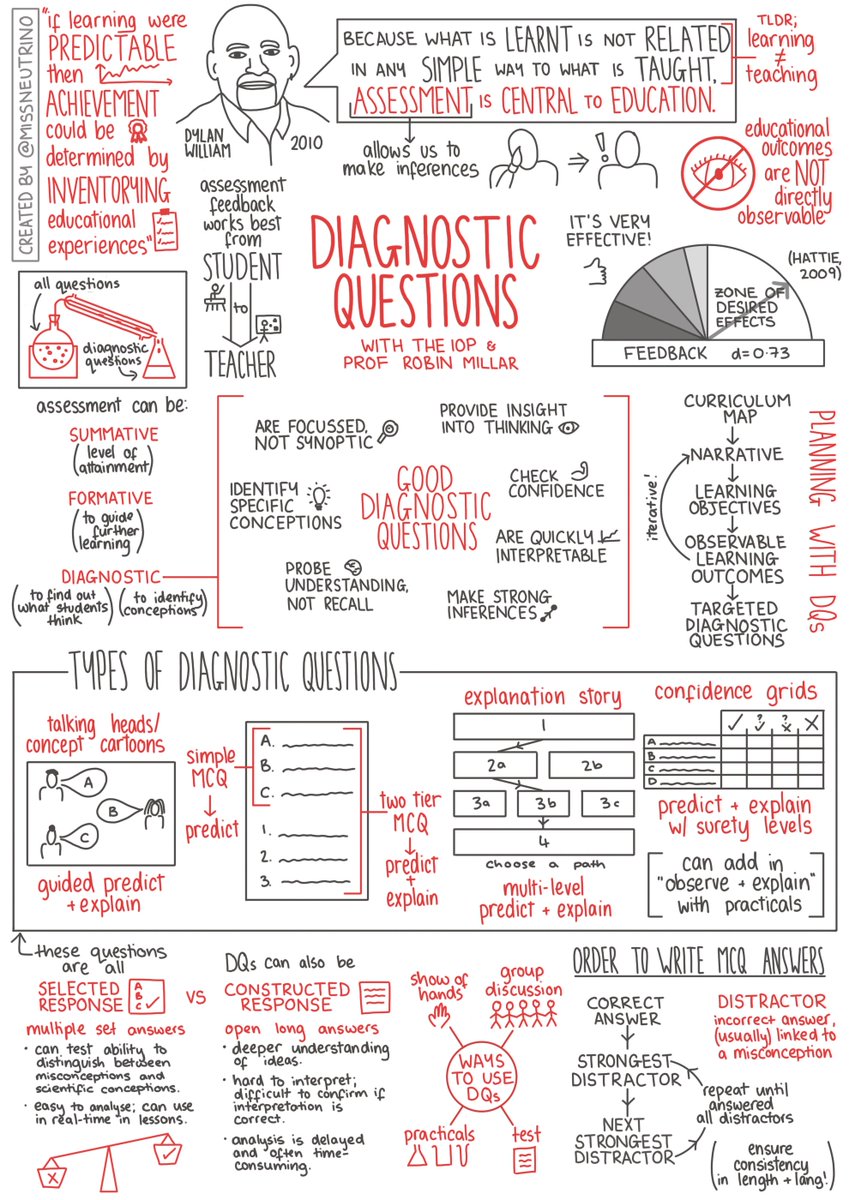 CREATED BY @MISSNEUTRINO
"if learning were
PREDICTABLE
then
ACHIEVEMENT
could be
determined by
INVENTORYING
educational
experiences"
DYLAN
WILLIAM
2010
BECAUSE WHAT IS LEARNT IS NOT RELATED
IN ANY SIMPLE WAY TO WHAT IS TAUGHT,
ASSESSMENT IS CENTRAL TO EDUCATION.
TLDR;
learning
≠
teaching
allows us to
make inferences
educational
outcomes
are NOT
directly
observable
assessment
feedback
works best
from
STUDENT
to
TEACHER
DIAGNOSTIC
QUESTIONS
WITH THE IOP &
PROF ROBIN MILLAR
IT'S VERY
EFFECTIVE!
(HATTIE,
2009)
ZONE OF
DESIRED
EFFECTS
FEEDBACK d=0.73
all questions
diagnostic
questions
assessment can be:
SUMMATIVE
(level of
attainment)
FORMATIVE
(to guide
further
learning)
DIAGNOSTIC
(to find out
what students
think)
(to identify
conceptions)
GOOD
DIAGNOSTIC
QUESTIONS
ARE FOCUSSED,
NOT SYNOPTIC
PROVIDE INSIGHT
INTO THINKING
IDENTIFY
SPECIFIC
CONCEPTIONS
CHECK
CONFIDENCE
ARE QUICKLY
INTERPRETABLE
PROBE
UNDERSTANDING,
NOT RECALL
MAKE STRONG
INFERENCES
PLANNING WITH DQs
CURRICULUM
MAP
NARRATIVE
LEARNING
OBJECTIVES
OBSERVABLE
LEARNING
OUTCOMES
TARGETED
DIAGNOSTIC
QUESTIONS
iterative!
TYPES OF DIAGNOSTIC QUESTIONS
talking heads/
concept cartoons
A
B
C
guided predict
+ explain
simple
MCQ
predict
A.
B.
C.
1.
2.
3.
two tier
MCQ
predict
+
explain
explanation story
1
2a 2b
3a 3b 3c
4
choose a path
multi-level
predict + explain
confidence grids
✓ ?✓ ?✗ ✗
A
B
C
D
predict + explain
w/ surety levels
[can add in
"observe + explain"
with practicals]
these questions
are all
SELECTED
RESPONSE
A
B
C ✓
multiple set answers
• can test ability to
distinguish between
misconceptions and
scientific conceptions.
• easy to analyse; can use
in real-time in lessons.
VS
DQs can also be
CONSTRUCTED
RESPONSE
open long answers
• deeper understanding
of ideas.
• hard to interpret;
difficult to confirm if
interpretation is
correct.
• analysis is delayed
and often time-
consuming.
WAYS
TO USE
DQs
show of
hands
group
discussion
practicals
test
ORDER TO WRITE MCQ ANSWERS
CORRECT
ANSWER
STRONGEST
DISTRACTOR
NEXT
STRONGEST
DISTRACTOR
DISTRACTOR
incorrect answer,
(usually) linked to
a misconception
repeat until
answered
all distractors
(ensure
consistency
in length + lang!)